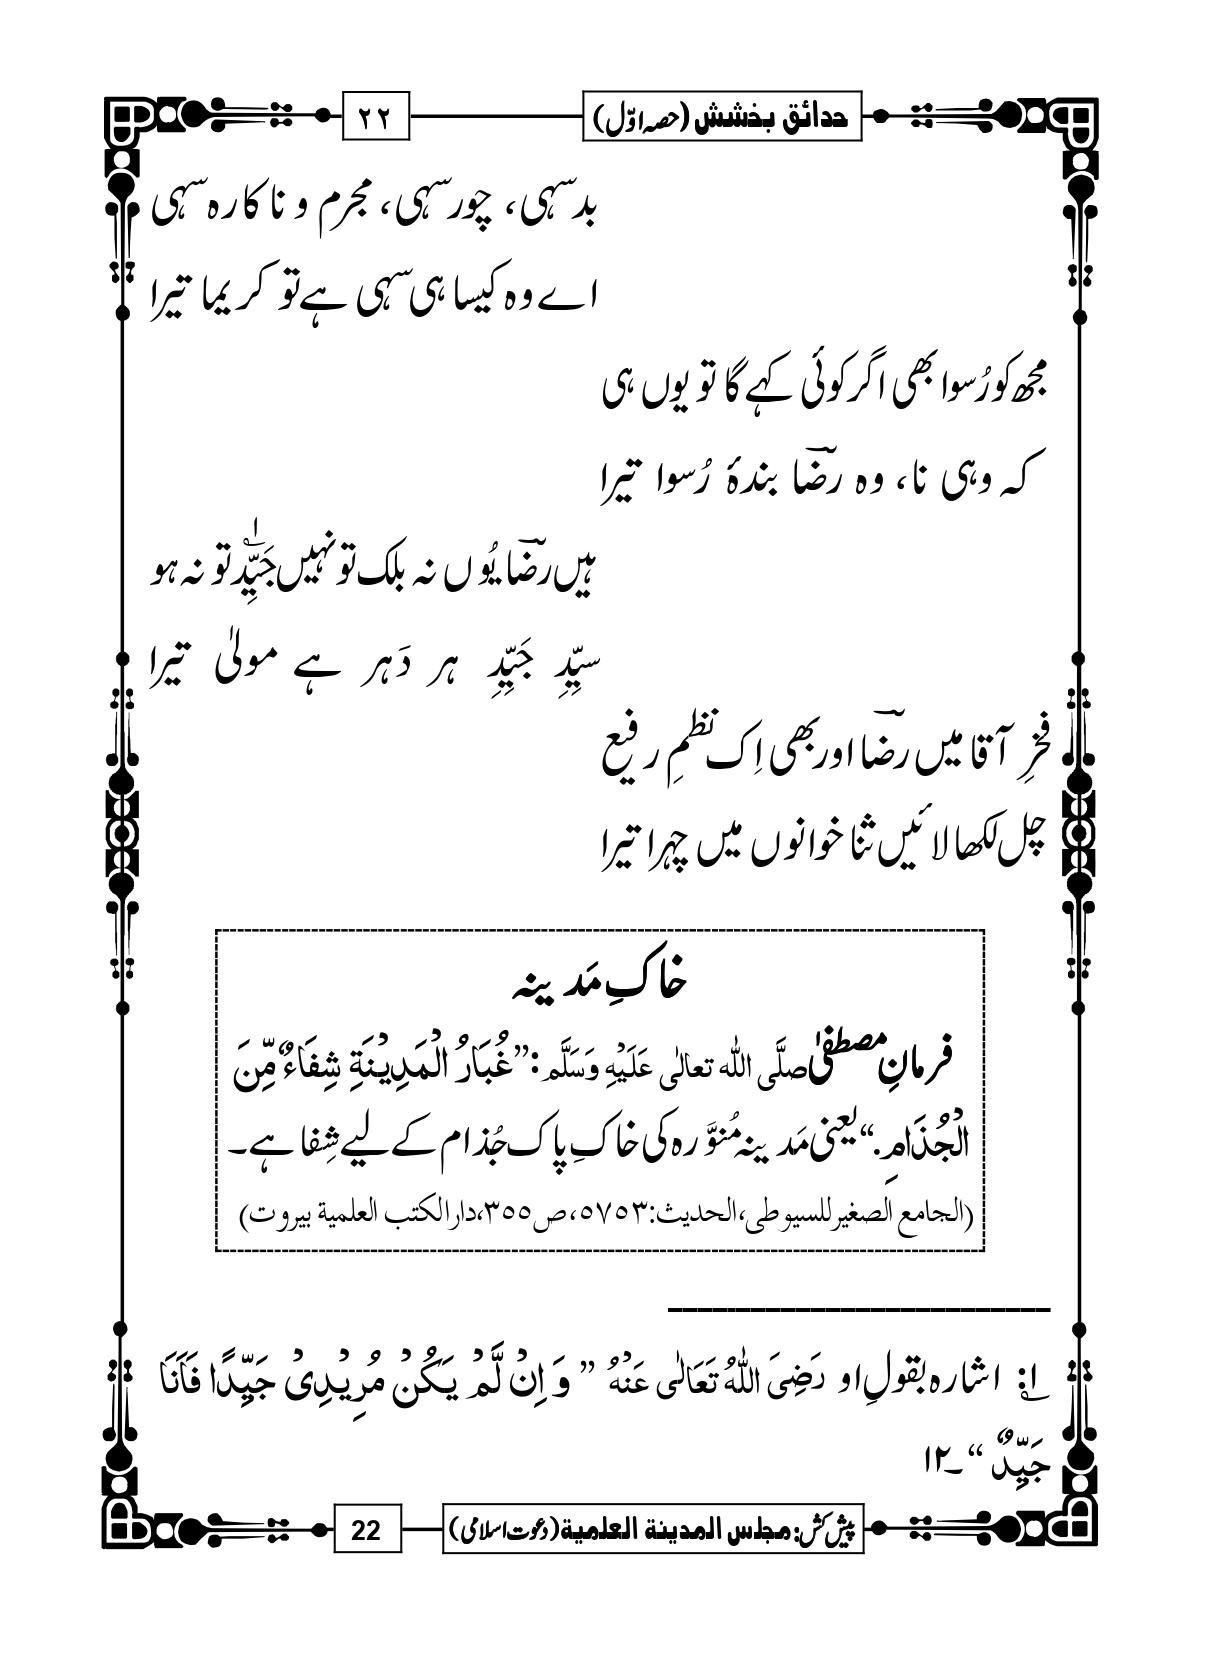 حدائق بخشش (حصہ اوّل)
۲۲
بد سہی، چور سہی، مجرم و ناکارہ سہی
اے وہ کیسا ہی سہی ہے تو کریما تیرا
مجھ کو رُسوا بھی اگر کوئی کہے گا تو یوں ہی
کہ وہی نا، وہ رضؔا بندۂ رُسوا تیرا
ہیں رضؔا یُوں نہ بلک تو نہیں جَیِّد ؎۱ تو نہ ہو
سیِّدِ جَیِّدِ ہر دَہر ہے مولیٰ تیرا
فخرِ آقا میں رضؔا اور بھی اِک نظمِ رفیع
چل لکھا لائیں ثنا خوانوں میں چہرا تیرا
خاکِ مَدینہ
فرمانِ مصطفیٰ صلَّی اللہ تعالٰی عَلَیْہِ وَسَلَّم: ”غُبَارُ الْمَدِیْنَةِ شِفَاءٌ مِّنَ
الْجُذَامِ.“ یعنی مَدینہ مُنوَّرہ کی خاکِ پاک جُذام کے لیے شِفا ہے۔
(الجامع الصغیر للسیوطی، الحدیث:۵۷۵۳، ص۳۵۵، دار الکتب العلمیة بیروت)
؎۱: اشارہ بقولِ او رَضِیَ اللّٰہُ تَعَالٰی عَنْہُ ” وَ اِنْ لَّمْ یَکُنْ مُرِیْدِیْ جَیِّدًا فَاَنَا
جَیِّدٌ “۔۱۲
پیش کش: مجلس المدینة العلمیة (دعوت اسلامی)
22